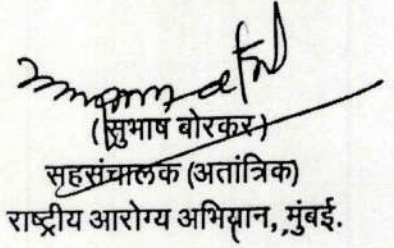 (सुभाष बोरकर)
सहसंचालक (अतांत्रिक)
राष्ट्रीय आरोग्य अभियान, मुंबई.